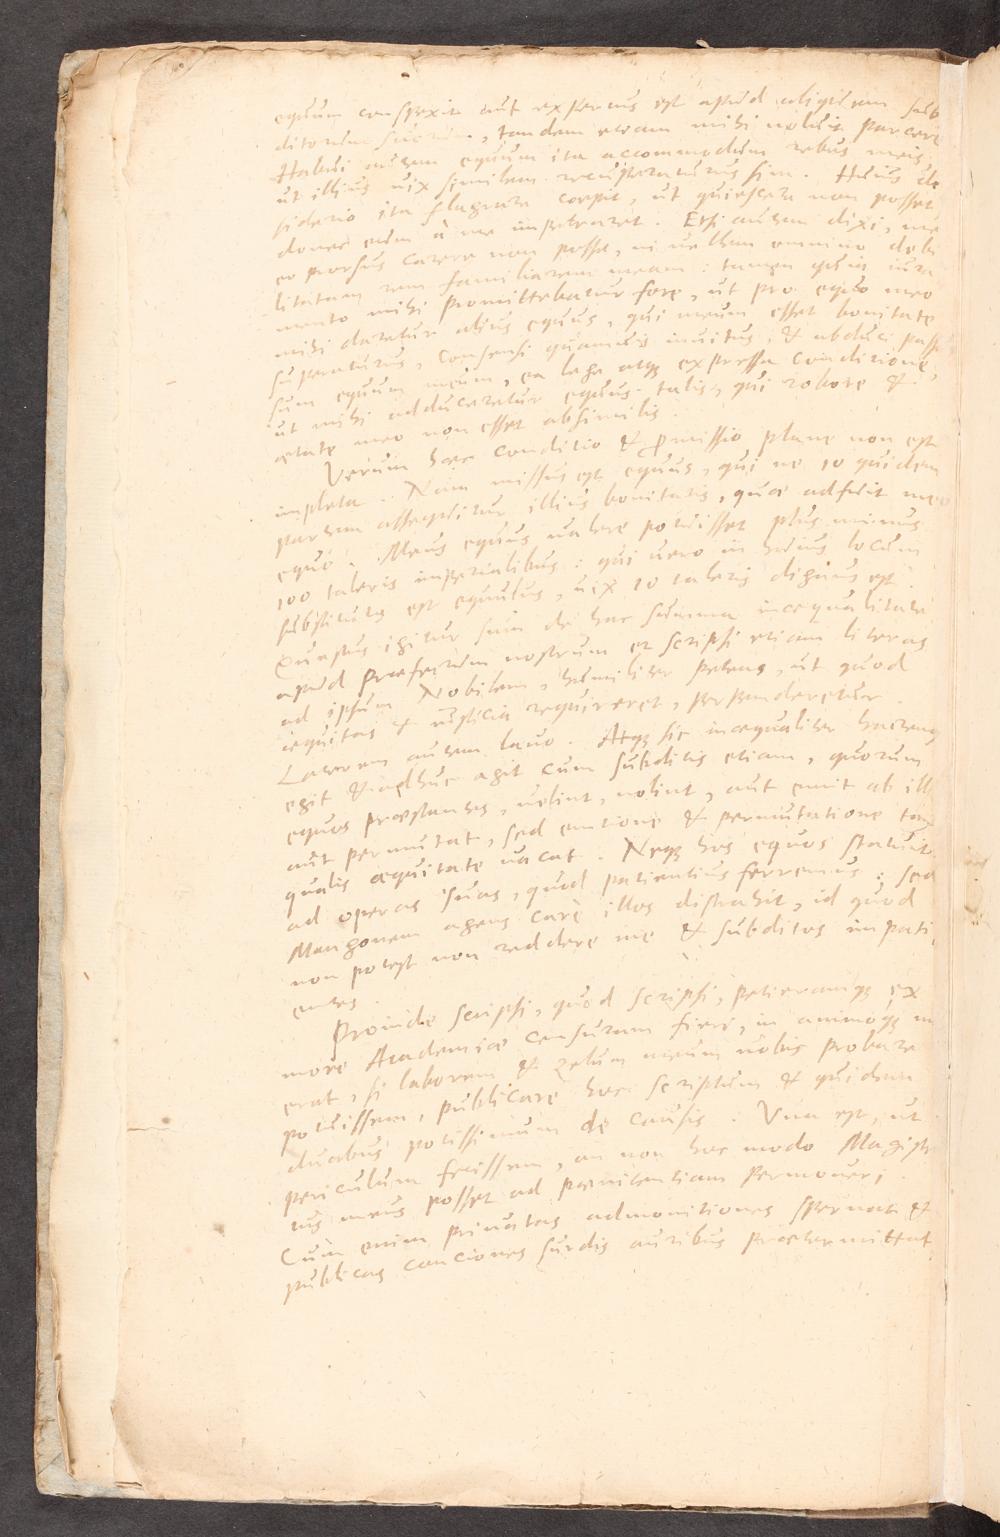 equum conspexit aut expertus est apud aliquem sub
ditorum suorum, tandem etiam mihi noluit parcere
Habui autem equum ita accommodum rebus meis
ut illius uix similem recuperaturus sim. Huius de
siderio ita flagrare coepit, ut quiescere non posset
donec eum à me impetraret. Etsi autem dixi, me
eo prorsus carere non posse, ni uellem omnino debi
litatam rem familiarem meam: tamen quia iura
mento mihi promittebatur fore, ut pro equo meo
mihi daretur alius equus, qui meum esset bonitate
superaturus, consensi quamuis inuitus, & abduci pass
sum equum meum, ea lege atq expressa conditione,
ut mihi adduceretur equus talis, qui robore &
aetate meo non esset absimilis.
Verum haec conditio & promissio plane non est
impleta. Nam missus est equus, qui ne 10 quidem
partem assequitur illius bonitatis, quae adfuit meo
equo. Meus equus ualere potuisset plus minus
100 taleris imperialibus: qui uero in huius locum
substitutus est equulus, uix 10 taleris dignus est.
Questus igitur sum de hac summa inaequalitate
apud Praefectum nostrum et scripsi etiam literas
ad ipsum Nobilem, humiliter petens, ut quod
aequitas & iusticia requireret, perpenderetur
Laterem autem lauo. Atq sic inaequaliter hacten
egit & adhuc agit cum subditis etiam, quorum
equos praestantes, uelint, nolint, aut emit ab ill
aut permutat, sed emtione & permutatione ta
qualis aequitate uacat. Neq hos equos statuit
ad operas suas, quod patientius ferremus: sed
Mangonem agens carè illos distrahit, id quod
non potest non reddere me & subditos impati
entes.
Proinde scripsi, quod scripsi, petieramq ex
more Academiae censuram fieri, in animoq m
erat, si laborem & zelum meum uobis probare
potuissem, publicare hoc scriptum & quidem
duabus potissimum de causis. Vna est, ut
periculum fecissem, an non hoc modo Magist
tus meus posset ad poenitentiam permoueri.
Cùm enim priuatas admonitiones spernat &
publicas conciones surdis auribus praetermittat